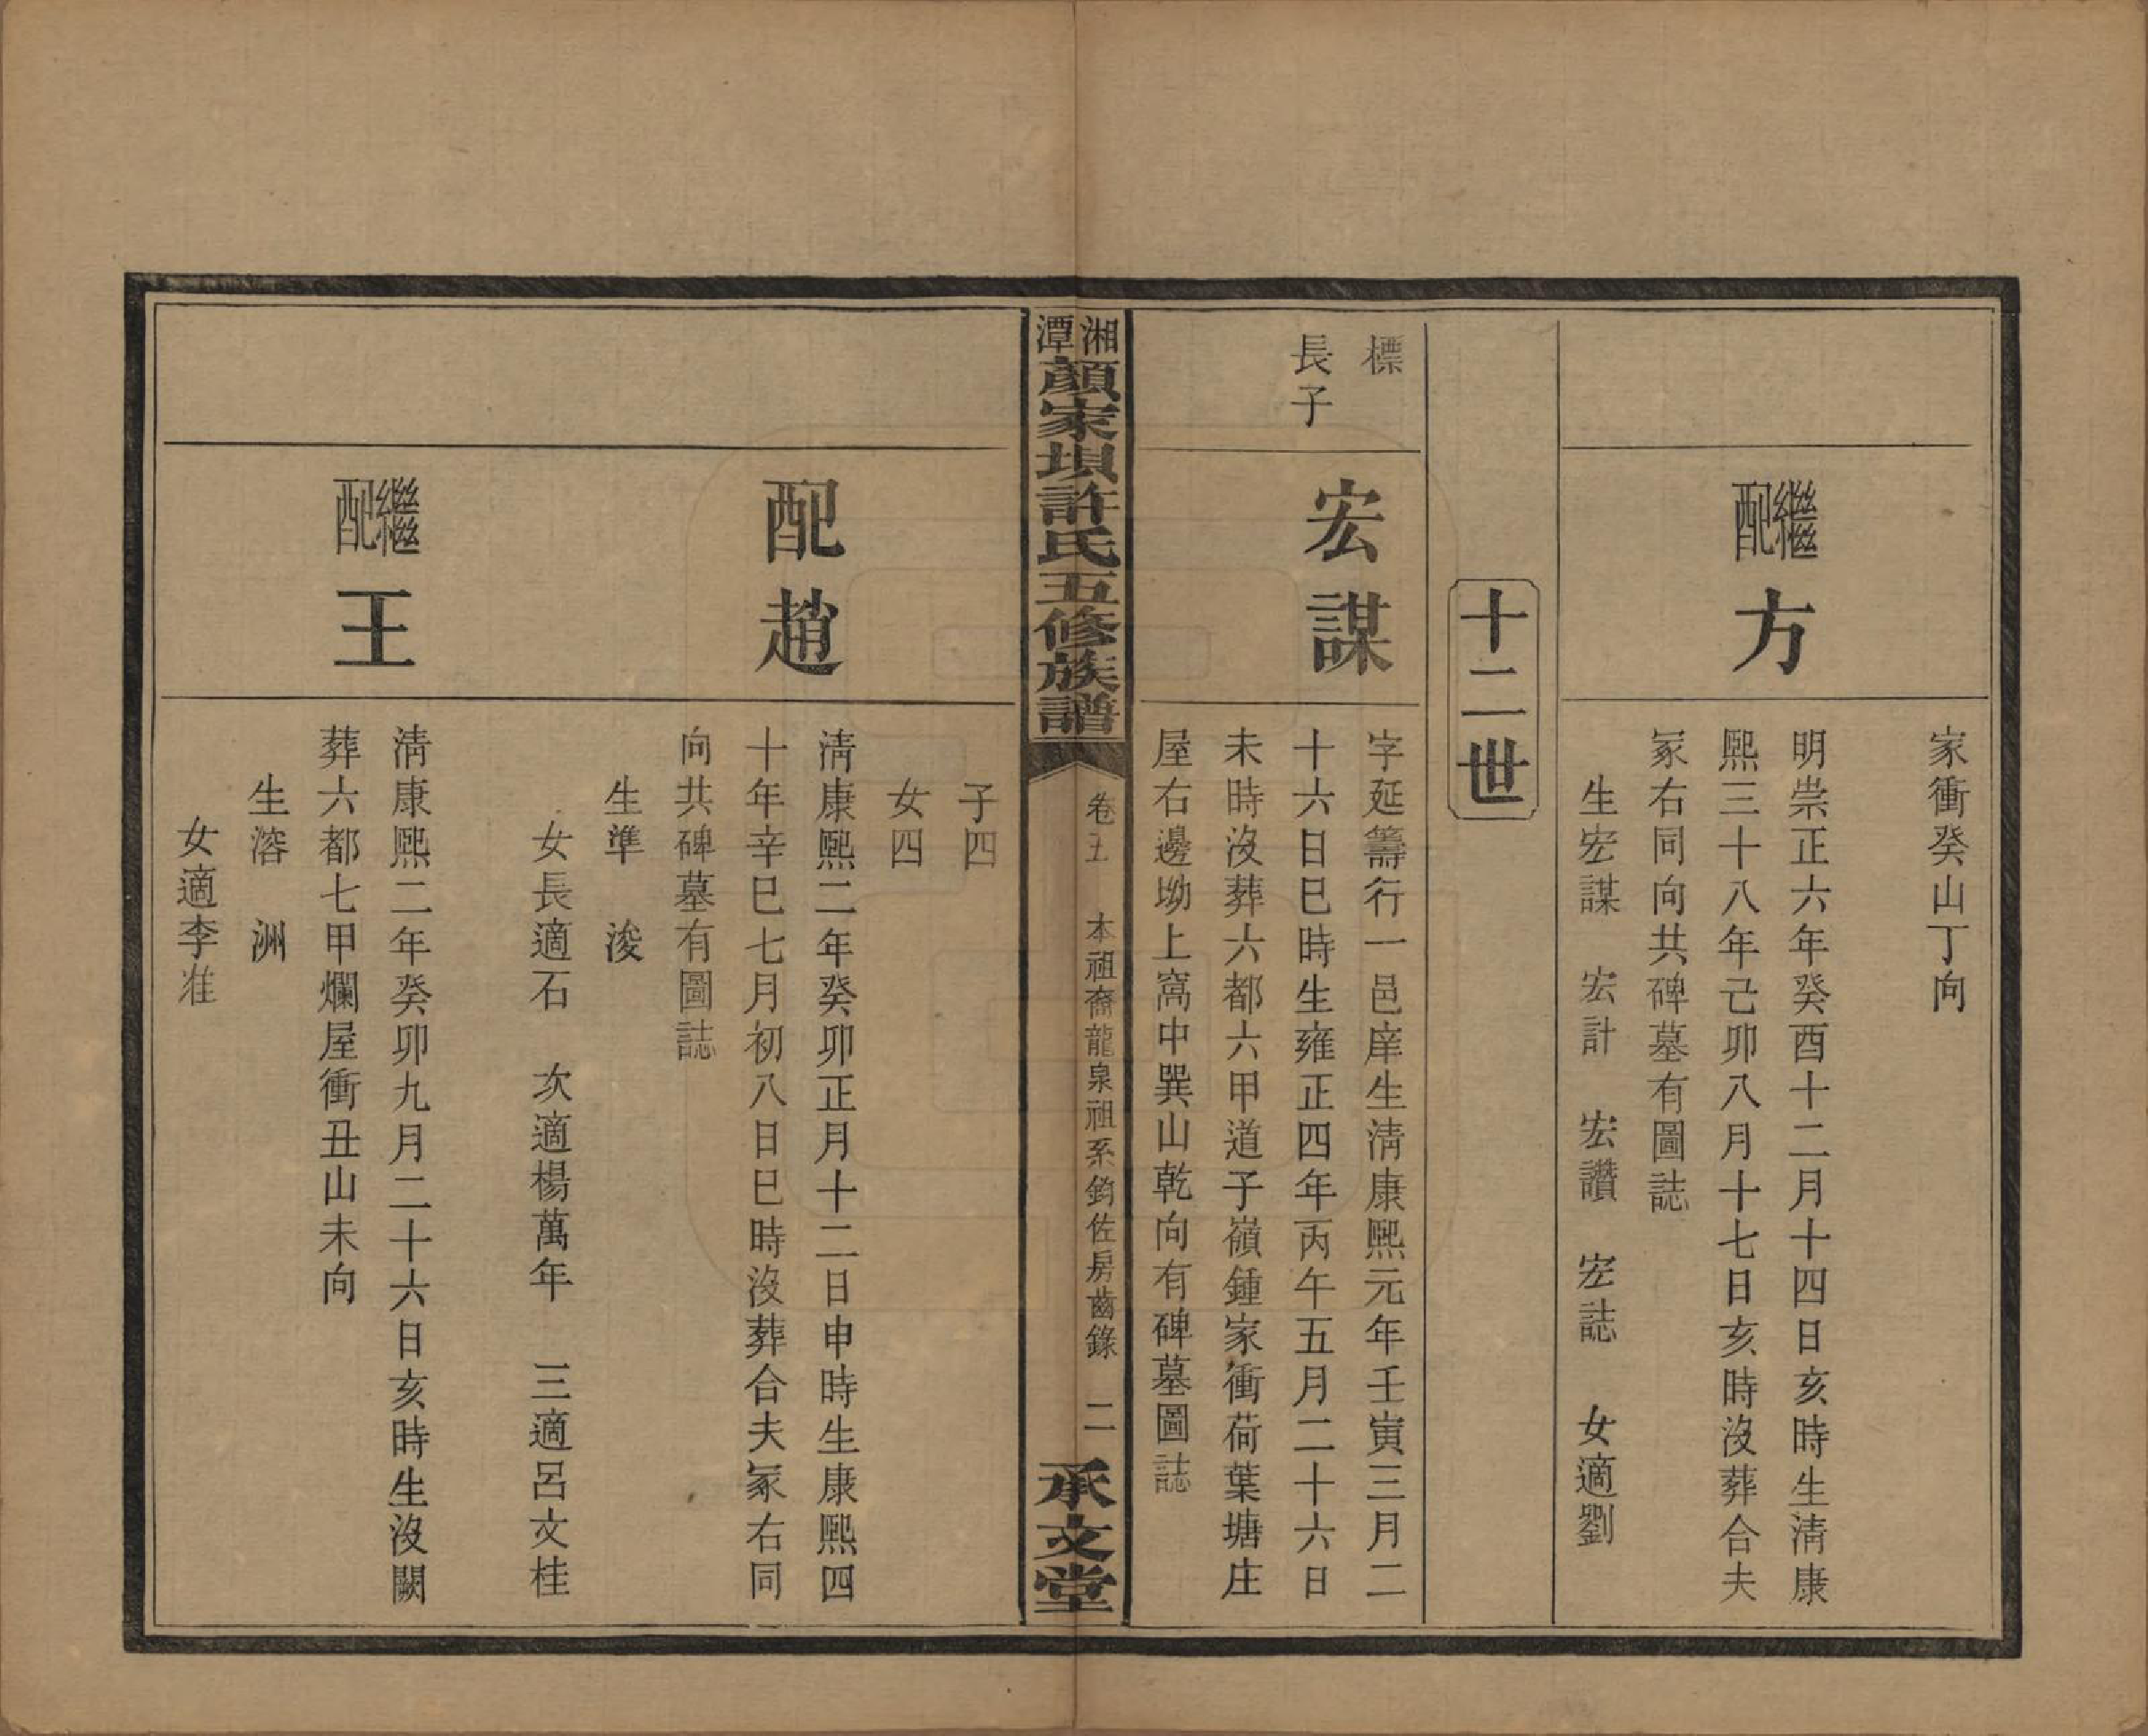 家衝癸山丁向
繼配方
明崇正六年癸酉十二月十四日亥時生清康
熙三十八年己卯八月十七日亥時沒葬合夫
冢右同向共碑墓有圖誌
生宏謀　宏計　宏讚　宏誌　女適劉
十二世
標
長子
宏謀
字延籌行一邑庠生清康熙元年壬寅三月二
十六日巳時生雍正四年丙午五月二十六日
未時沒葬六都六甲道子嶺鍾家衝荷葉塘庄
屋右邊坳上窩中巽山乾向有碑墓圖誌
湘潭顏家垻許氏五修族譜
卷五　本祖裔龍泉祖系鈞佐房齒錄　二
承文堂
子四
女四
配趙
清康熙二年癸卯正月十二日申時生康熙四
十年辛巳七月初八日巳時沒葬合夫冢右同
向共碑墓有圖誌
生準　浚
女長適石　次適楊萬年　三適呂文桂
繼配王
清康熙二年癸卯九月二十六日亥時生沒闕
葬六都七甲爛屋衝丑山未向
生溶　洲
女適李